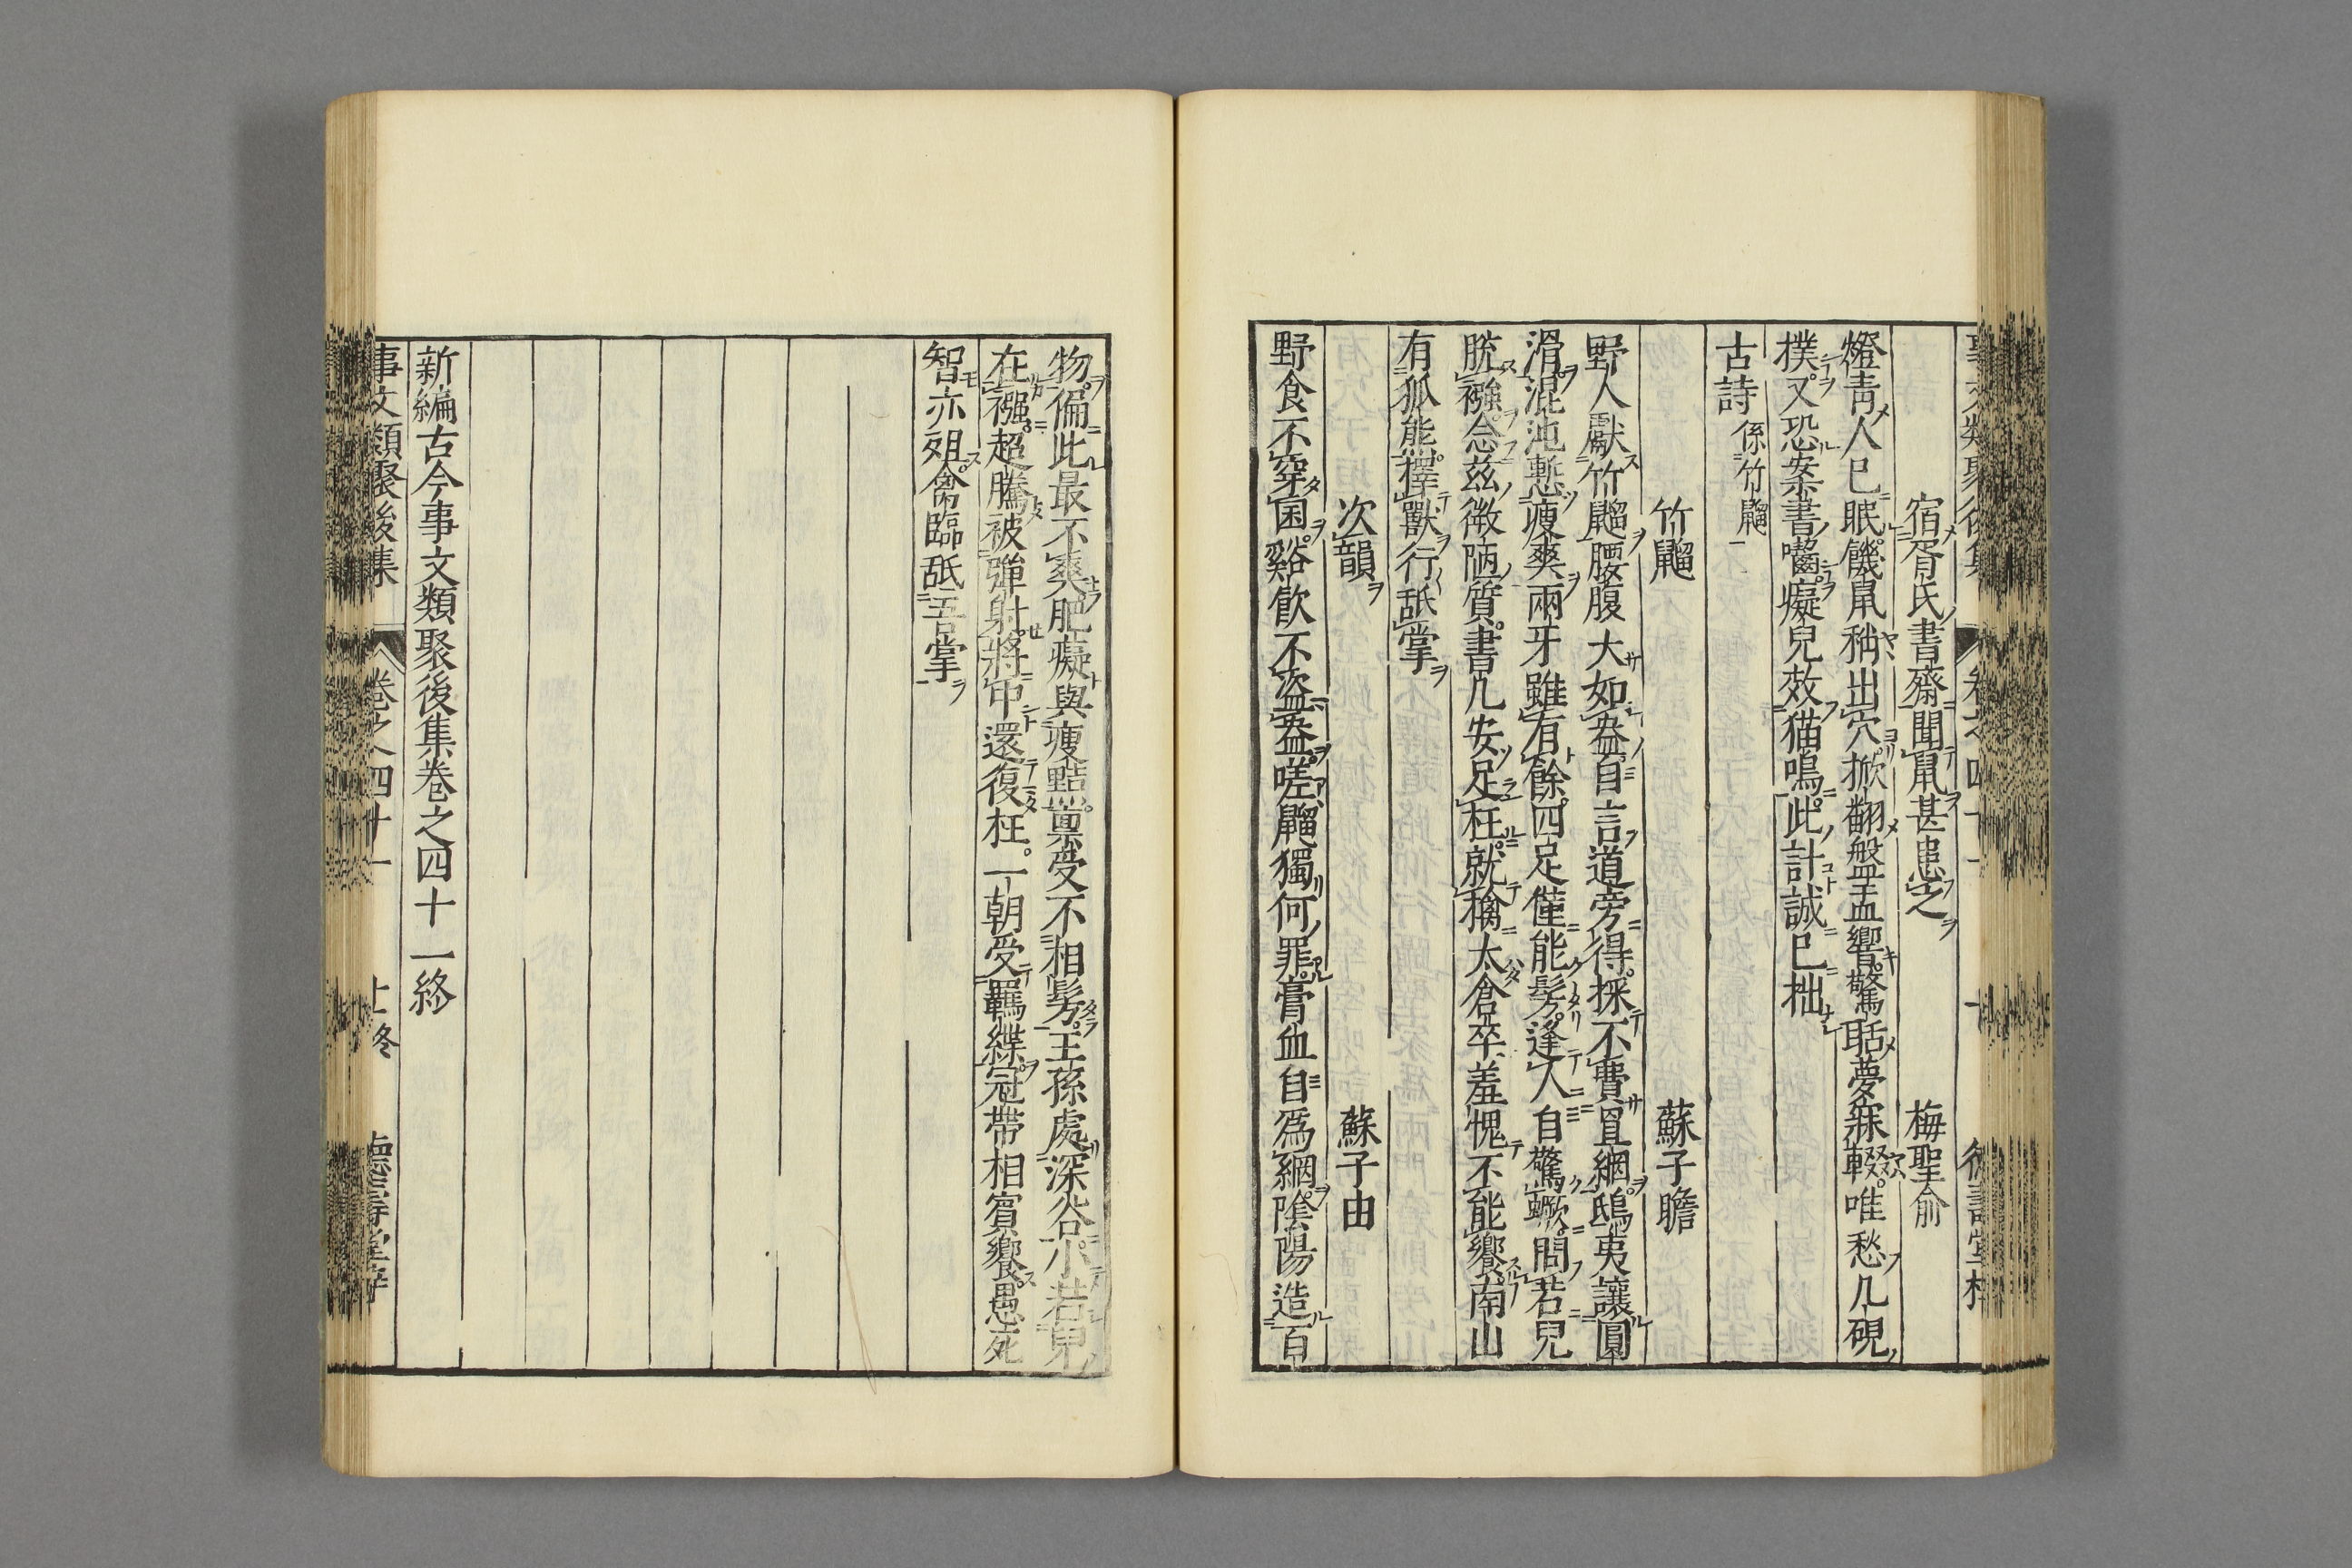 宿胥氏書齋聞鼠甚患之　梅聖俞
燈青人已眠饑鼠稍出穴掀翻盤盂響驚聒夢寐輟唯愁几硯
撲又恐案書嚙癡兒效猫鳴此計誠已拙
古詩 係竹䶉
竹䶉　蘇子瞻
野人獻竹䶉腰腹大如盎自言道旁得採不費罝網鴟夷讓圓
滑混沌慙瘦爽兩牙雖有餘四足僅能髣逢人自驚蹶悶若兒
脫襁念茲微陋質書几安足枉就擒太倉卒羞愧不能饗南山
有狐能擇獸行舐掌
次韻　蘇子由
野食不穿囷谿飲不盗盎嗟䶉獨何罪膏血自爲網陰陽造百
物偏此最不爽肥癡與瘦黠稟受不相髣王孫處深谷小若兒
在襁超騰被彈射將中還復枉一朝受羈緤冠帶相賓饗愚死
智亦殂禽臨舐吾掌
新編古今事文類聚後集卷之四十一終
事文類聚後集　卷之四十一　十終　德壽堂梓